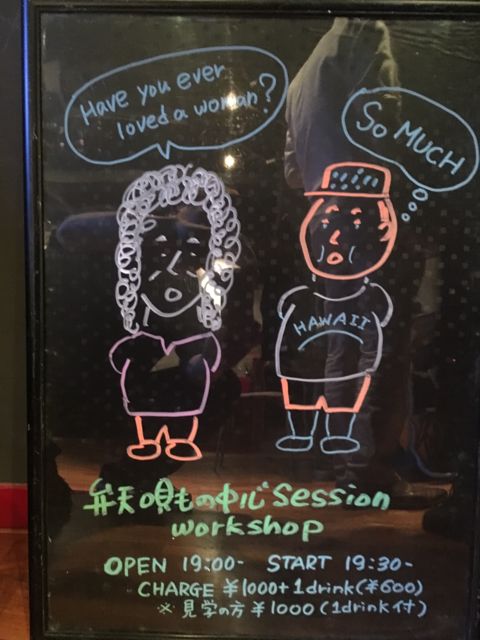 Have you ever
loved a woman?
So MUCH
HAWAII
弁天唄もの中心Session
workshop
OPEN 19:00- START 19:30-
CHARGE ¥1000+1drink(¥600)
※見学の方¥1000(1drink付)